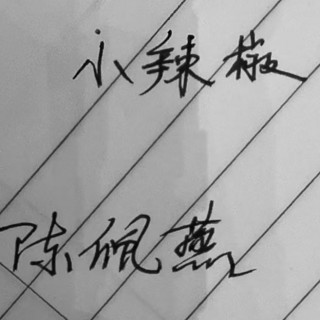 小辣椒
陈佩燕